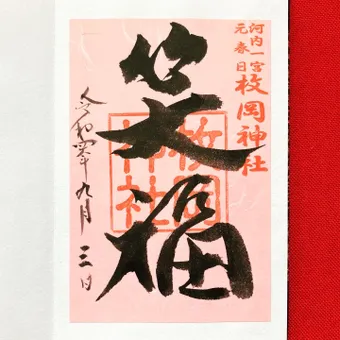 河内一宮
元春日
枚岡神社
笑福
枚岡神社
令和 年九月三日